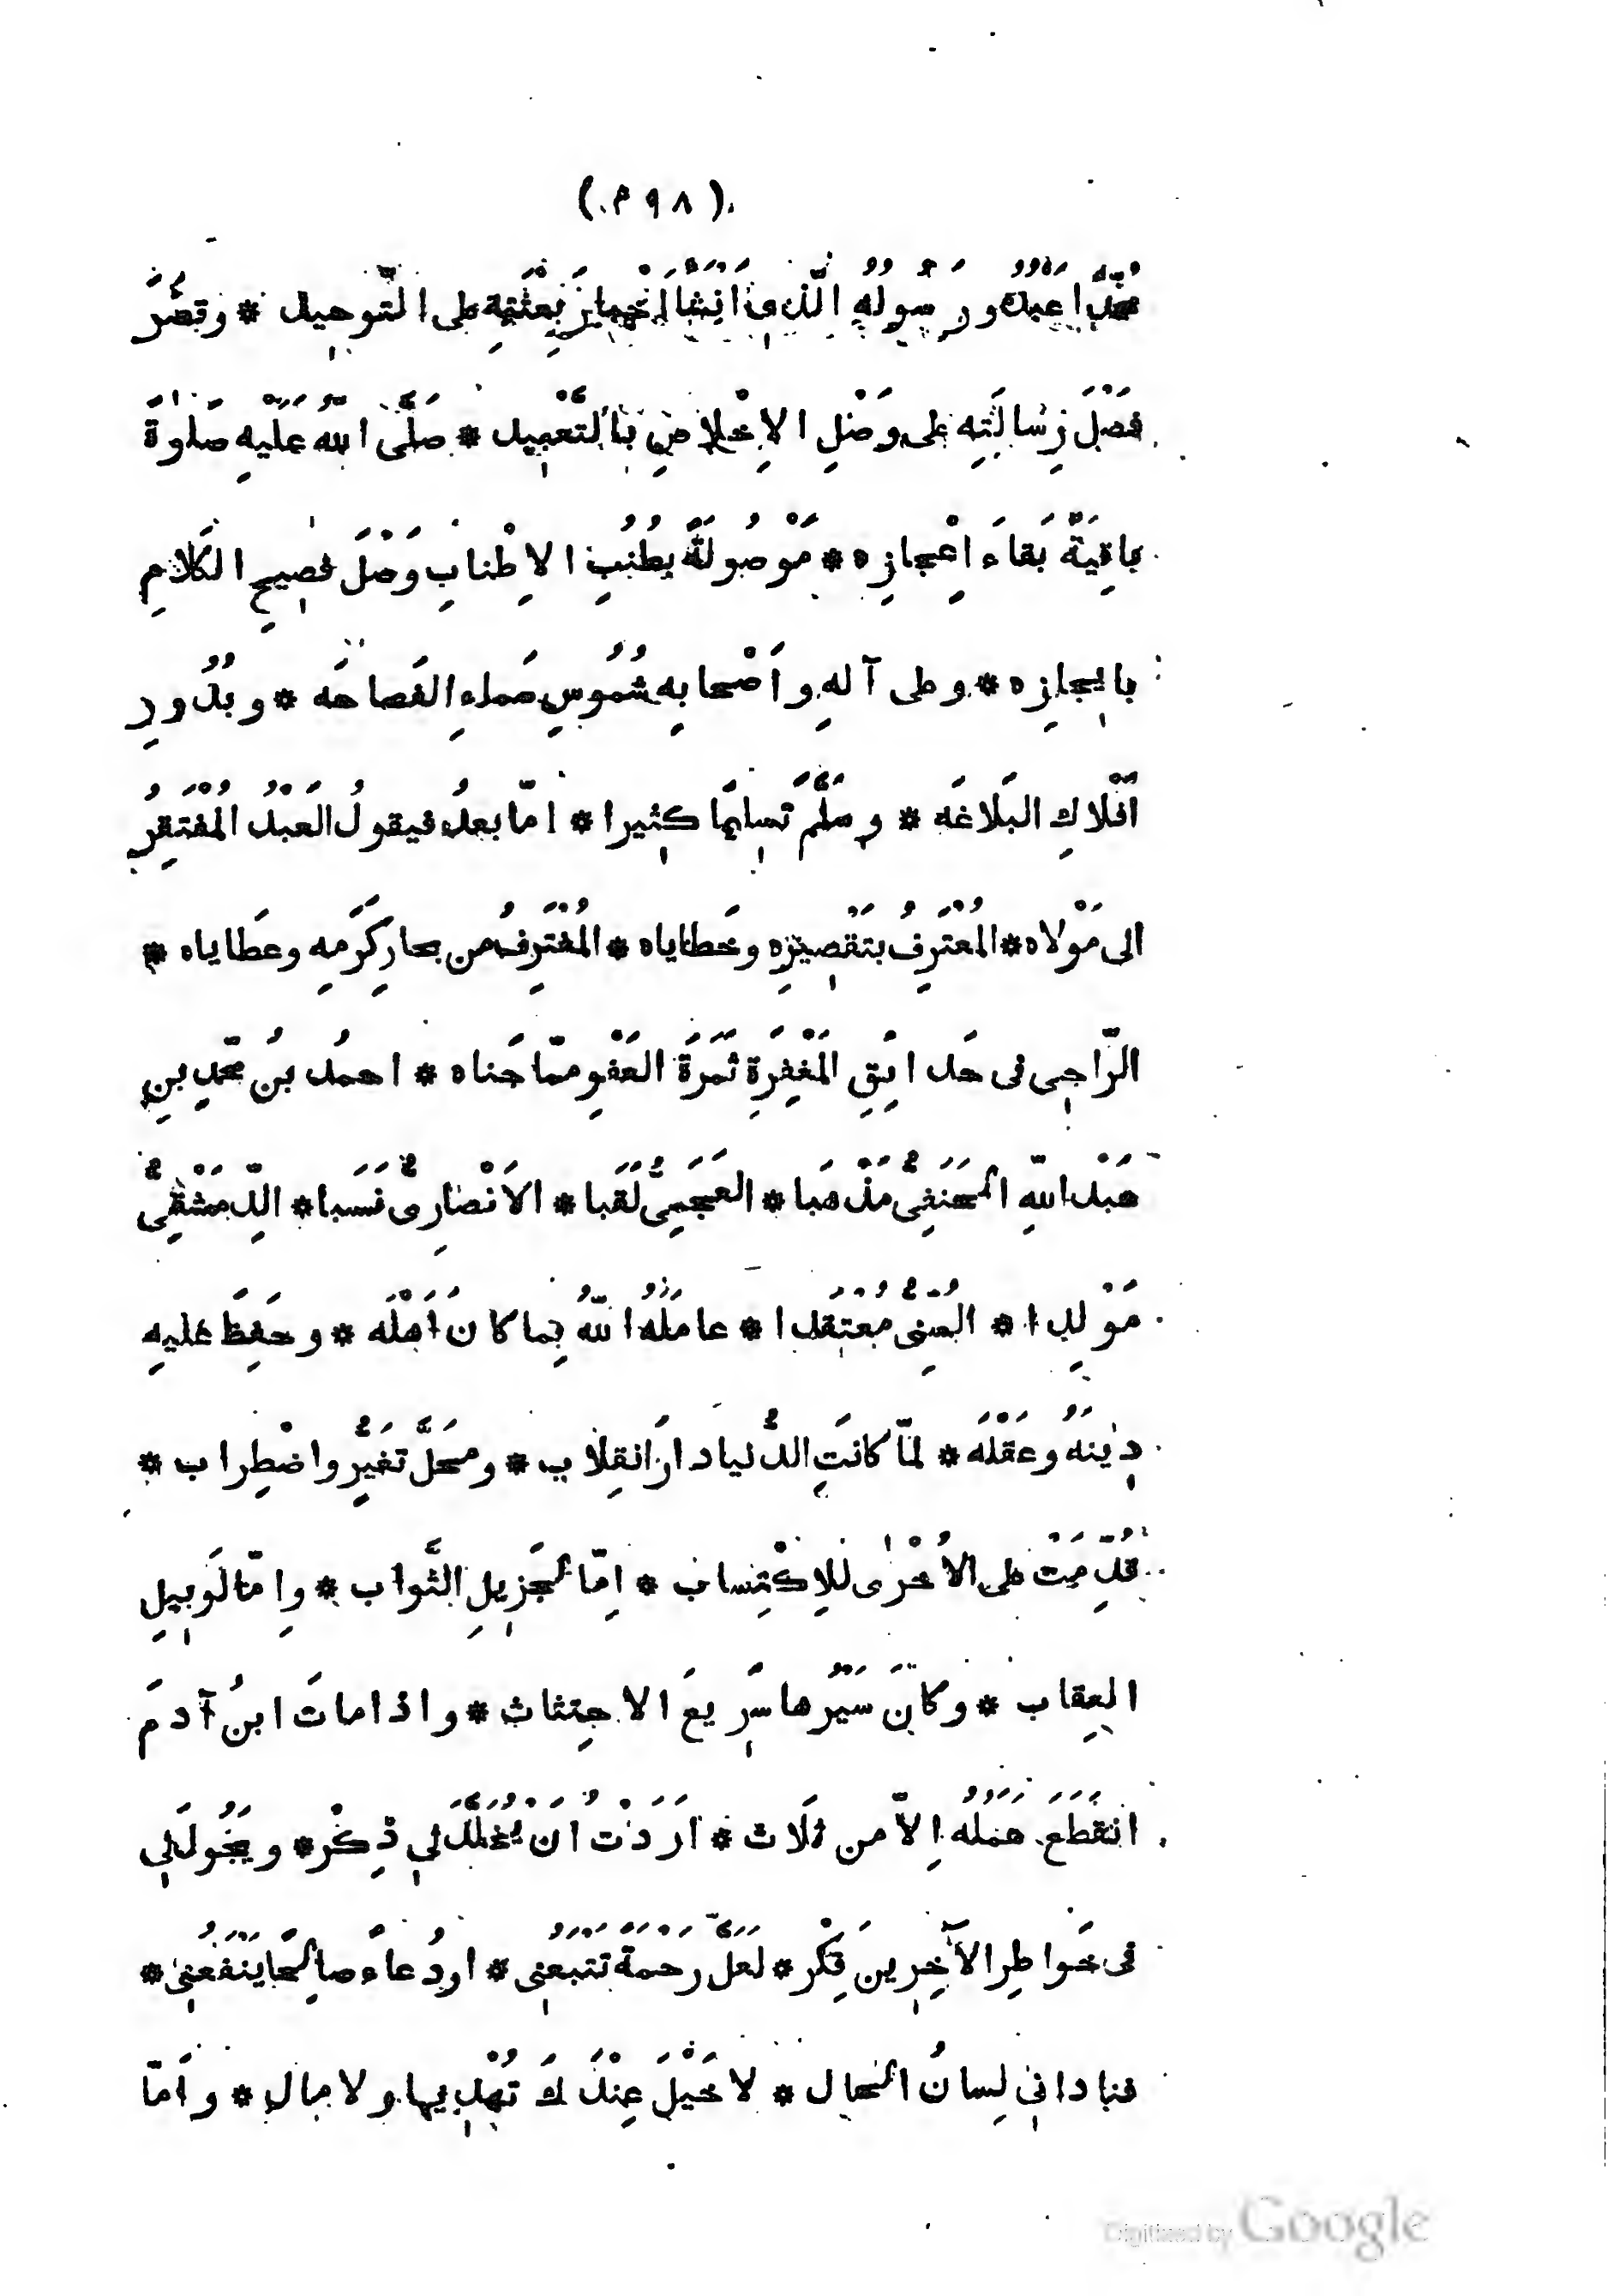 (٤٩٨)
محمّدا عبدُه ورسُولُه الّذى اَنْشَأَ اِخْبارَ بَعْثَتِهِ على التّوحيد * وقصَّرَ
فصْلَ رِسالَتِه على وَصْلِ الاِخْلاصِ بالتَّعْبِيد * صلَّى اللّهُ عليْهِ صَلٰوةً
باقِيَةً بَقاءَ اِعْجازِه * مَوْصُولَةً بِطُنُبِ الاِطْنابِ وَصْلَ فصِيحِ الكَلامِ
بِاِيجازِه * وعلى آلهِ واَصْحابِه شُمُوسِ سَماءِ الفَصاحَه * وبُدُورِ
اَفْلاكِ البَلاغَه * وسَلَّمَ تسلِيمًا كثِيرا * امّا بعدُ فيقولُ العَبْدُ المُفْتَقِرُ
الى مَوْلاه * المُعْتَرِفُ بتَقْصِيرِه وخَطاياه * المُغْتَرِفُ من بحارِ كَرَمِه وعَطاياه *
الرّاجِى فى حَدائِقِ المَغْفِرَةِ ثَمَرَةَ العَفْوِ ممّا جَناه * احمدُ بنُ محمّدِ بنِ
عَبْدِ اللّهِ الحَنَفِىُّ مَذْهَبا * العَجَمِىُّ لَقَبا * الاَنْصارِىُّ نَسَبا * الدِّمَشْقِىُّ
مَوْلِدا * السُنّىُّ مُعْتَقَدا * عامَلَهُ اللّهُ بِما كانَ اَهْلَه * وحَفِظَ عليهِ
دِينَهُ وعَقْلَه * لمّا كانَتِ الدُّنيا دارَ انقِلاب * ومحَلَّ تغَيُّرٍ واضْطِراب *
قُدِّمَتْ على الاُخْرٰى لِلاِكْتِساب * اِمّا لجَزِيلِ الثَّواب * واِمّا لَوَبِيلِ
العِقاب * وكانَ سَيْرُها سَرِيعَ الاجتِثاث * واذا ماتَ ابنُ آدمَ
انقَطَعَ عَمَلُه اِلاّ من ثَلاث * اَرَدْتُ اَنْ يُخلَّدَ لى ذِكْر * ويجُولَ لى
فى خَواطِرِ الآخِرِينَ فِكْر * لَعَلَّ رَحْمَةً تتبَعُنِى * اودُعاءً صالِحًا يَنْفَعُنِى *
فنادانى لِسانُ الحال * لا خَيْلَ عِنْدَكَ تُهْدِيها ولا مال * واَمّا
Digitized by Google